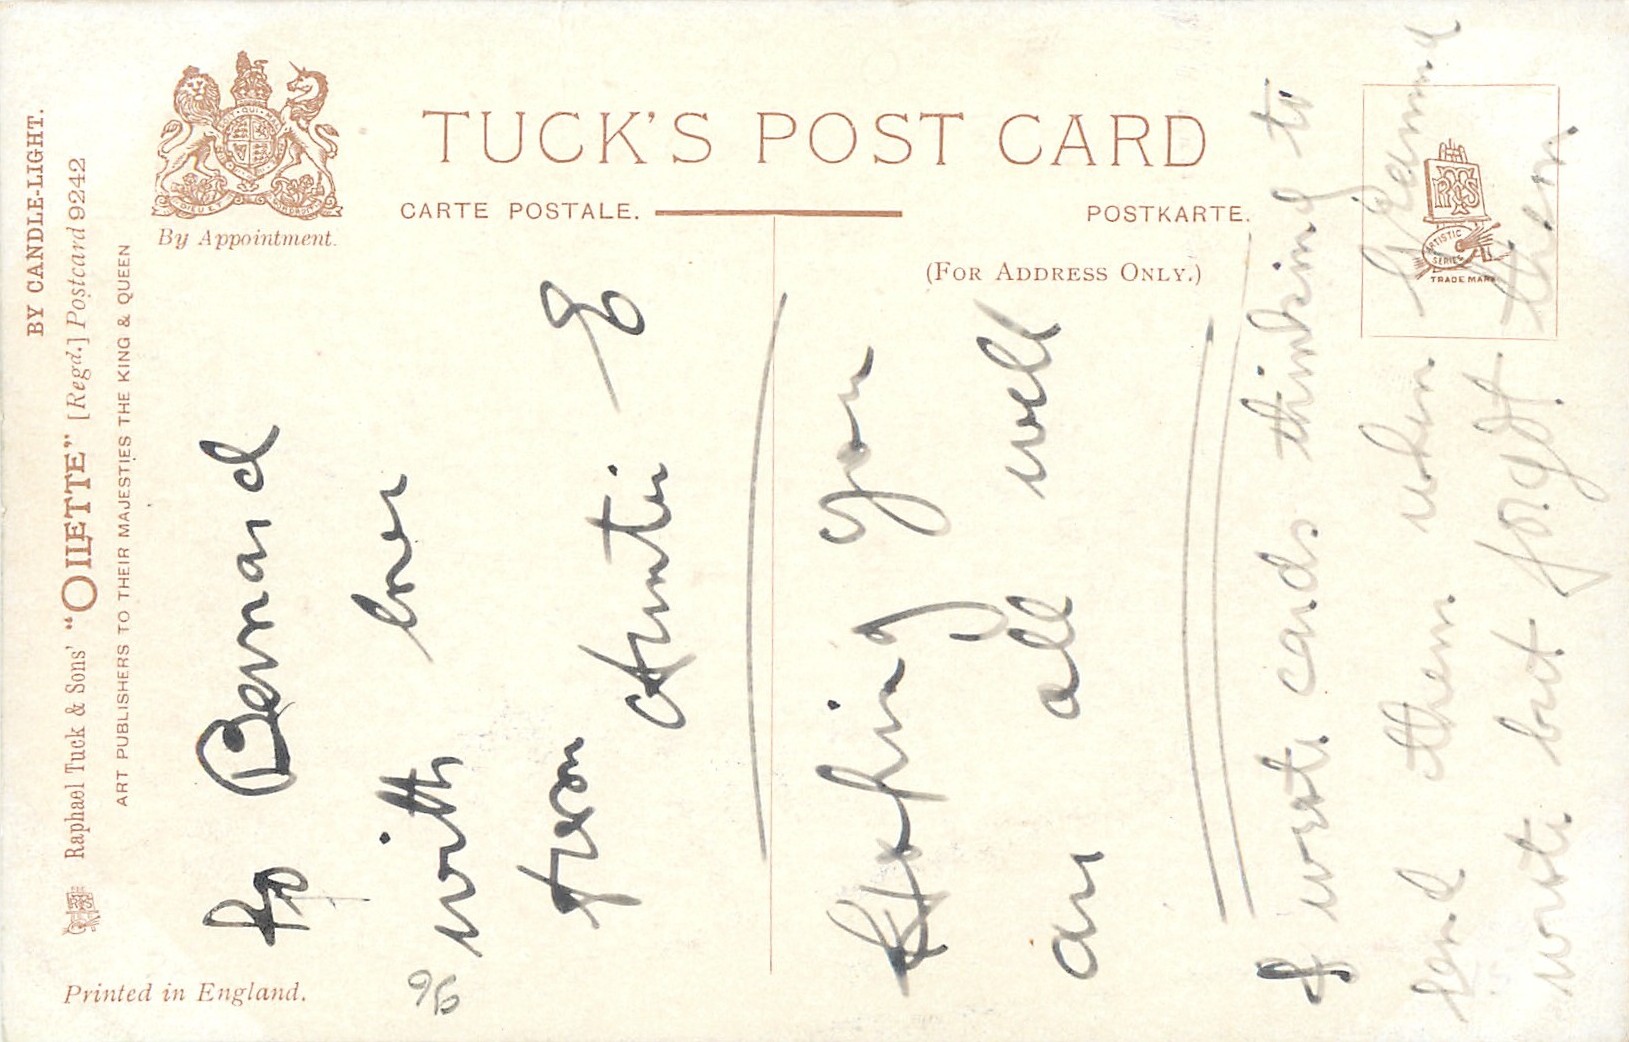 BY CANDLE-LIGHT.
Raphael Tuck & Sons' "OILETTE" [Regd.] Postcard 9242
ART PUBLISHERS TO THEIR MAJESTIES THE KING & QUEEN
By Appointment.
TUCK'S POST CARD
CARTE POSTALE.
POSTKARTE.
(FOR ADDRESS ONLY.)
ARTISTIC SERIES
TRADE MARK
Printed in England.
To Bernard
with love
from
Auntie E
Hoping you
are all well
I wrote cards thinking to
send them when
wrote but forgot them